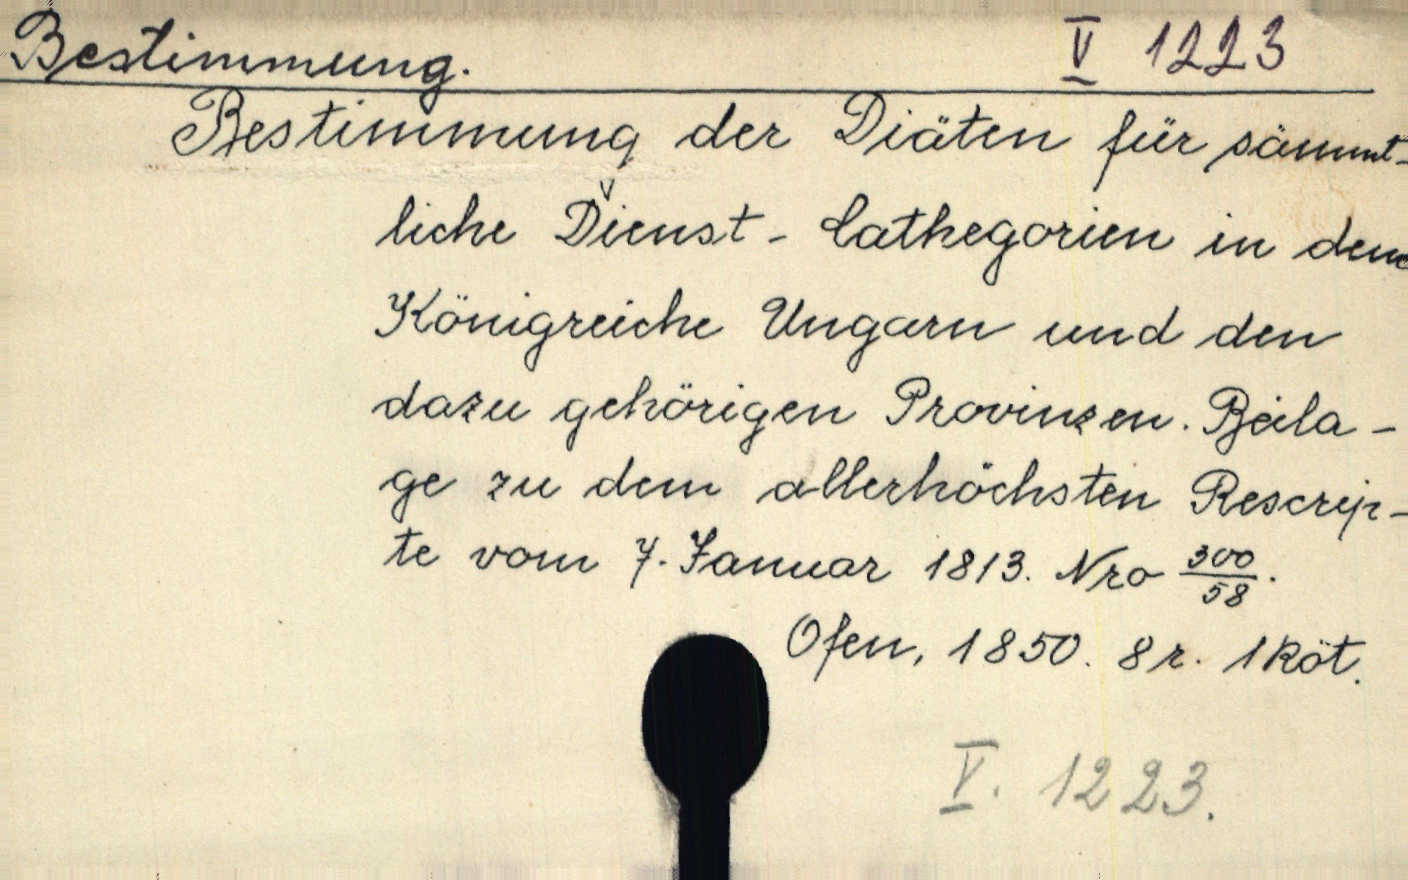 Bestimmung. V 1223
Bestimmung der Diäten für sämmt-
liche Dienst-Cathegorien in dem
Königreiche Ungarn und den
dazu gehörigen Provinzen. Beila-
ge zu dem allerhöchsten Rescrip-
te vom 7. Januar 1813. Nro 300/58.
Ofen, 1850. 8r. 1 köt.
V. 1223.